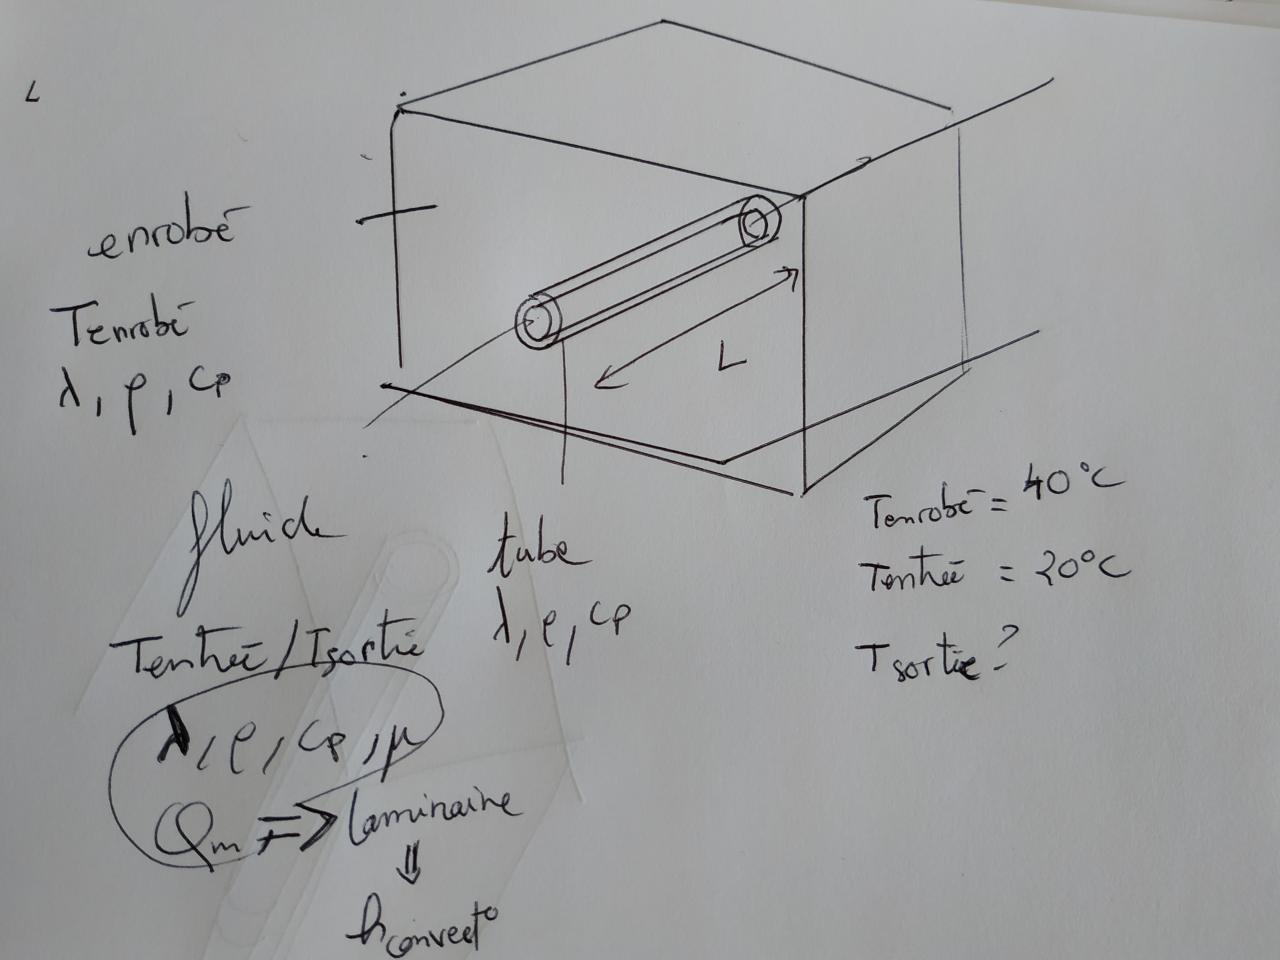 L
enrobé
Tenrobé
λ, ρ, cp
L
fluide
Tentrée/Tsortie
λ, ρ, cp, μ
Qm => laminaire
⇓
hconvect°
tube
λ, ρ, cp
Tenrobé = 40°C
Tentrée = 20°C
Tsortie ?